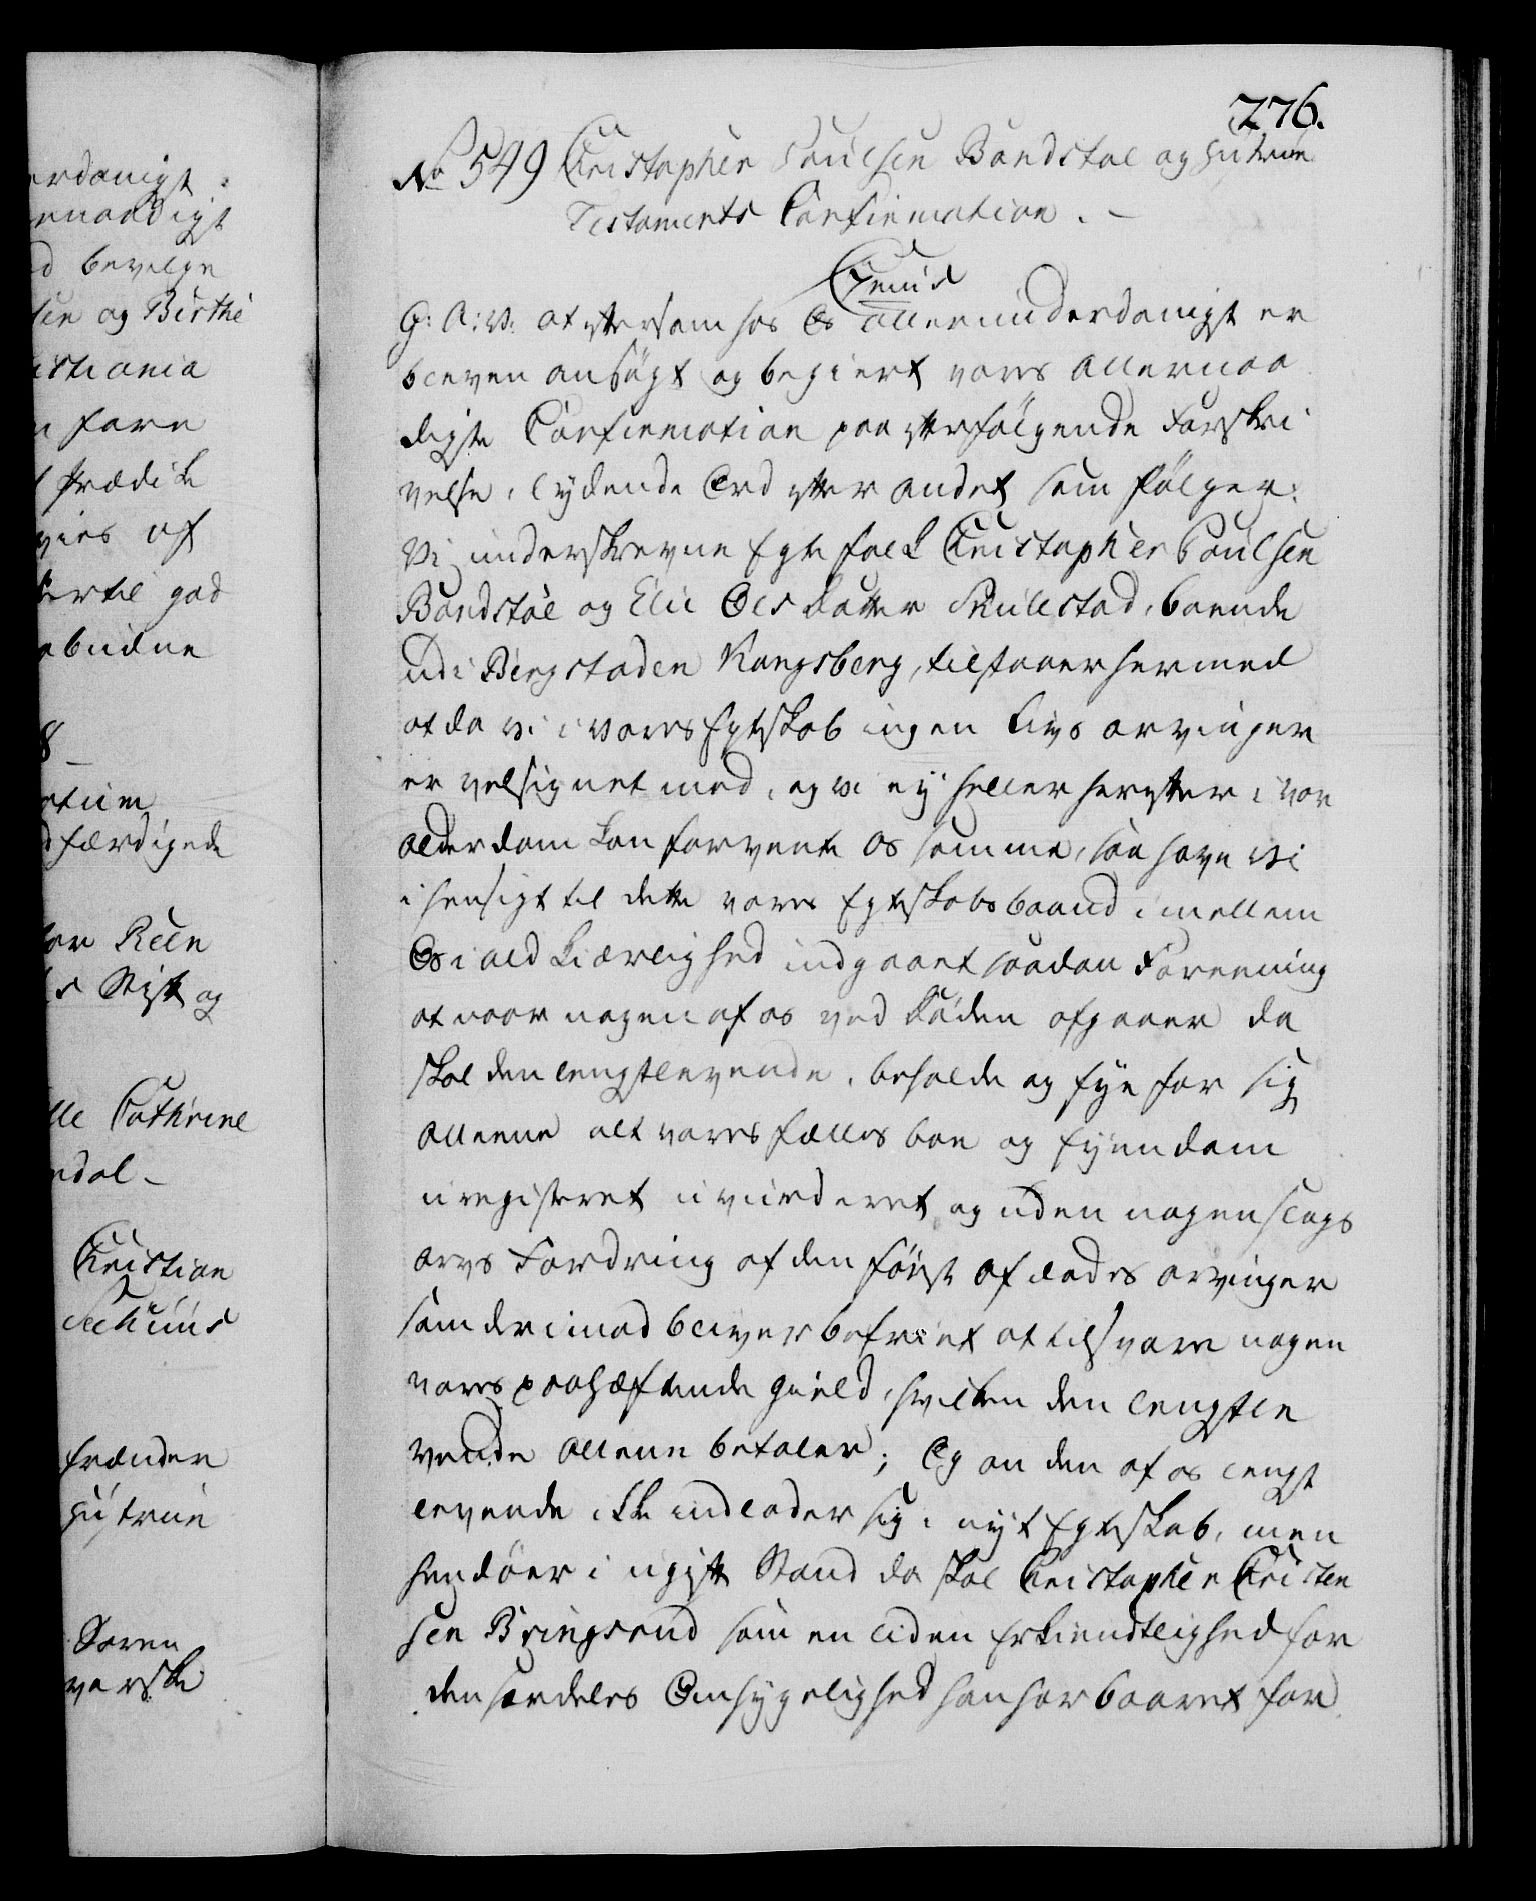 erdanigt
ernaadigt
d bevilge
sen og Birthe
istiania
n fare
t Prædik
vies af
hertil god
abudne
8 -
otium
dfærdigede
for Reen
s Stift og
lle Cathrine
ndal -
Christian
frænder
Hustrue
Søren
verske
276.
No 549 Christopher Poulsen Bandstøl og Hustrue
Testaments Confirmation. -
G: A: V: at eftersom hos Os allerunderdanigst er
bleven ansøgt og begiert vores allernaa
digste Confirmation paa efterfølgende Forskri
velse, lydende Ord efter andet som følger:
Vi underskrevne Egte folk Christopher Poulsen
Bandstøl og Elie Olsdatter Skulestad, boende
udi Bergstaden Kongsberg, tilstaaer hermed
at da vi i vores Egteskab ingen Livs arvinger
er velsignet med, og vi ey heller herefter i vor
alderdom kan forvente os samme, saa have vi
i hensigt til dette vores Egteskabs baand imellem
Os i ald Kiærlighed indgaaet saadan Foreening
at naar nogen af os ved Døden afgaaer da
skal den lengstlevende, beholde og eye for sig
alleene alt vores fælles boe og Eyendom
uregistret uvurderet og uden nogen slags
arvs Fordring af den først afdødes arvinger
som derimod bliver befriet at tilsvare nogen
vores paahæftende Gield, hvilken den lengstle
vende allene betaler; Og om den af os lengst
levende ikke indlader sig i nyt Egteskab, men
hendøer i ugift Stand da skal Christopher Christen
sen Bringsrud som en liden Erkiendtlighed for
den særdeles Omhyggelighed han har baaret for